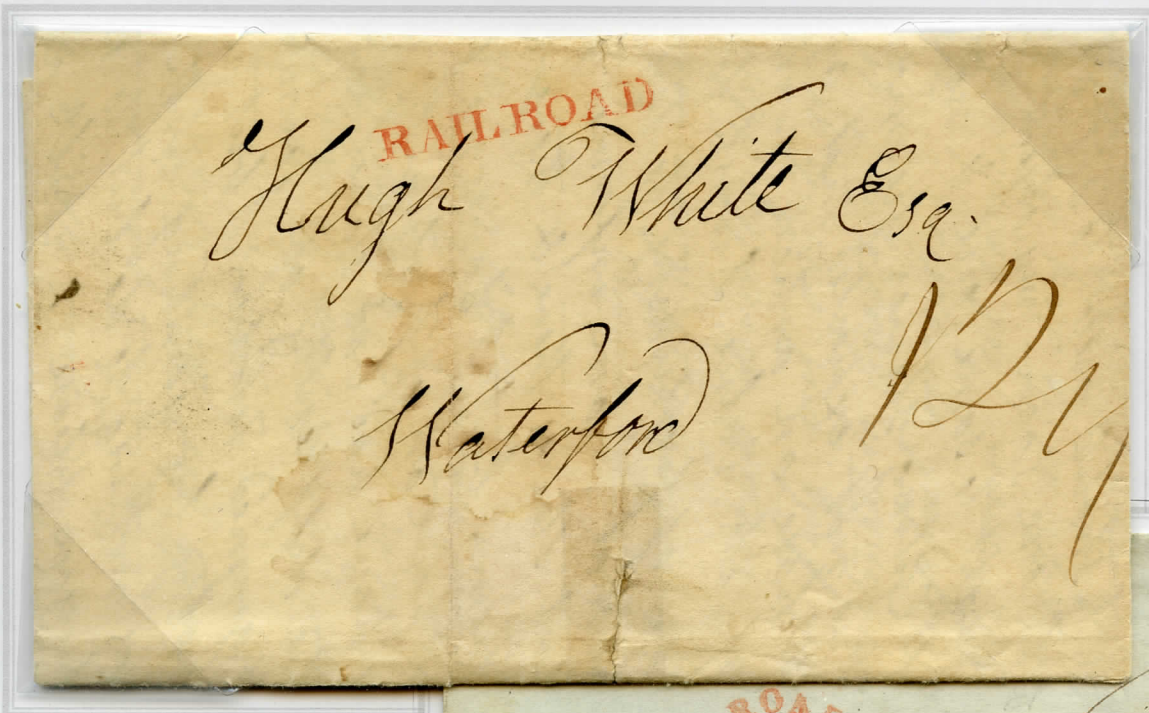 RAILROAD
Hugh White Esq.
Waterford